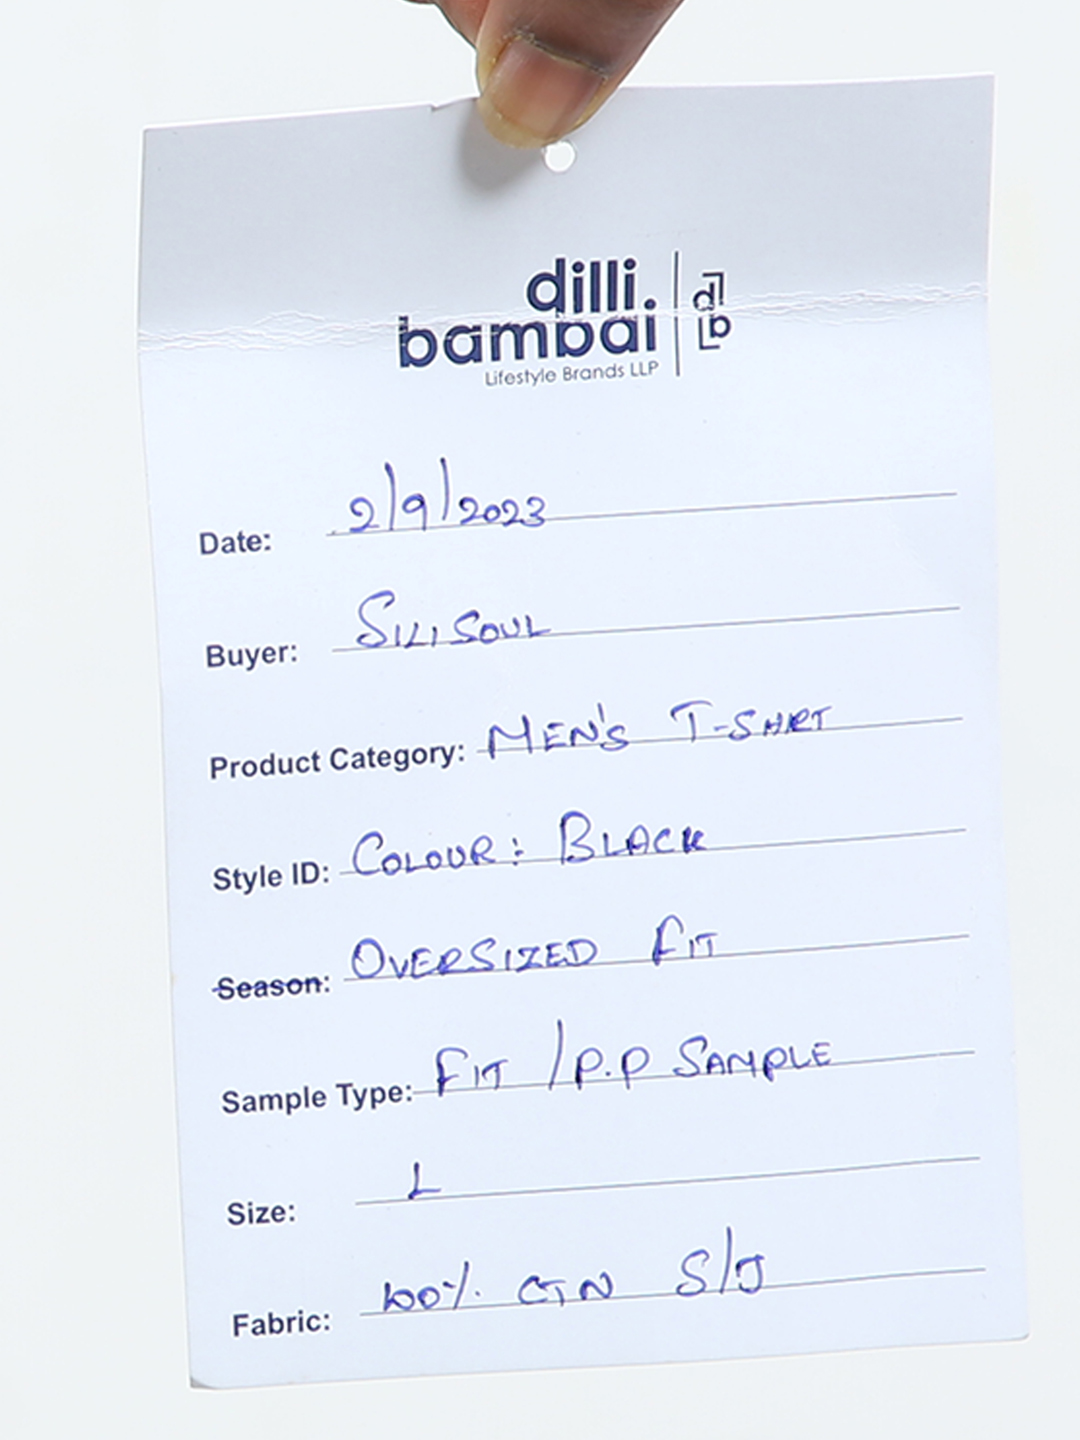 dilli
bambai
db
Lifestyle Brands LLP
Date: 2/9/2023
Buyer: SILISOUL
Product Category: MEN'S T-SHIRT
Style ID: COLOUR: BLACK
Season: OVERSIZED FIT
Sample Type: FIT / P.P SAMPLE
Size: L
Fabric: 100% CTN S/J